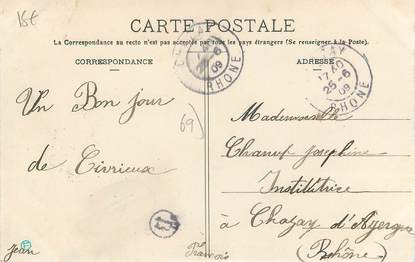 15€
CARTE POSTALE
La Correspondance au recto n'est pas acceptée par tous les pays étrangers (Se renseigner à la Poste).
CORRESPONDANCE
ADRESSE
RHONE
09
25-6
09
RHONE
69
Un Bon jour
de Civrieux
Mademoiselle
Josephine
Institutrice
à Chazay d'Azergues
(Rhône)
Jean
François